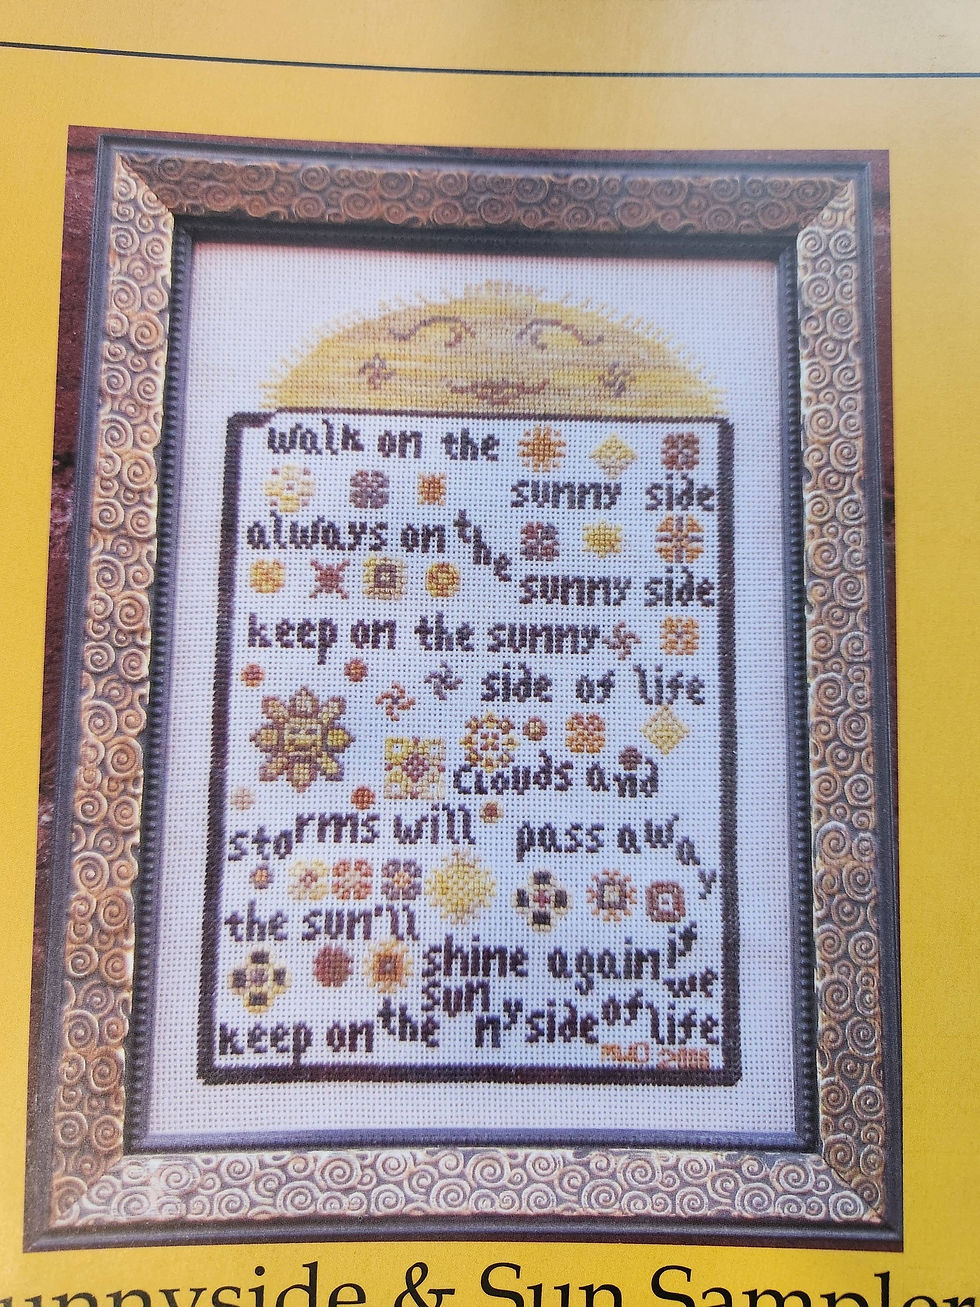 walk on the
sunny side
always on the
sunny side
keep on the sunny
side of life
clouds and
storms will pass away
the sun'll
shine again if we
keep on the sunny side of life
unnyside & Sun Sampler